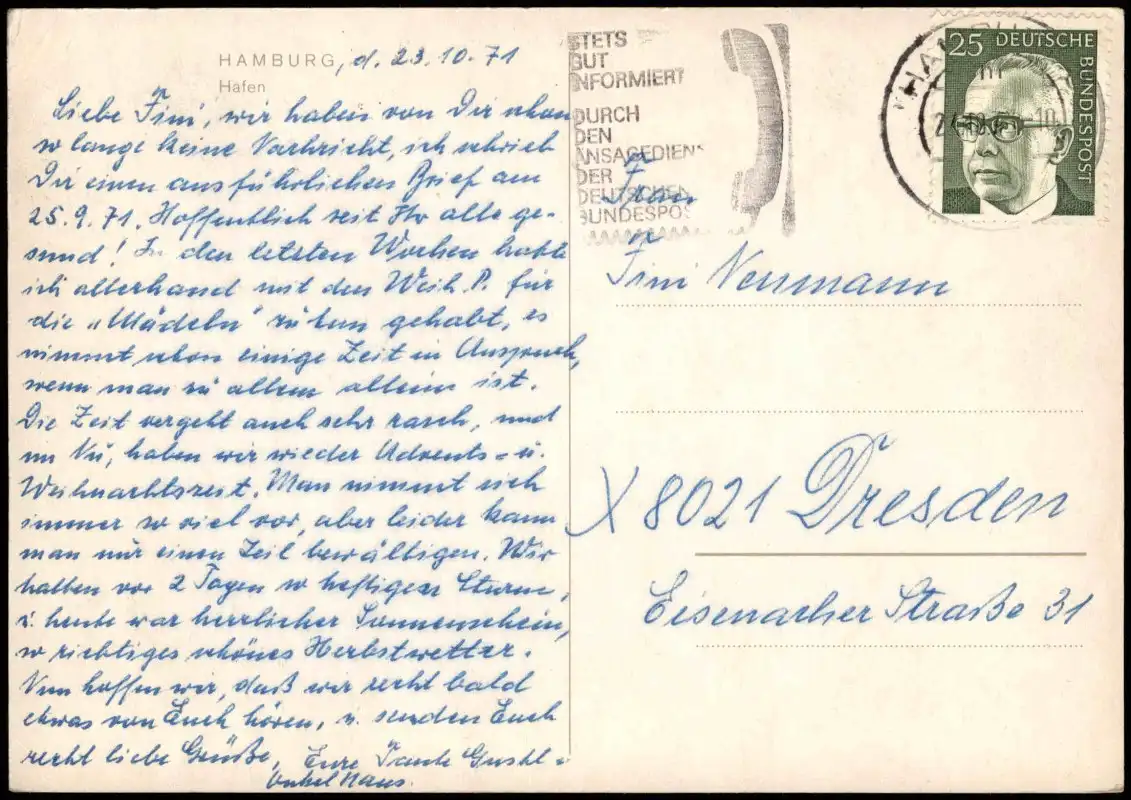 HAMBURG, d. 23.10.71
Hafen
Liebe Fini, wir haben von Dir schon
so lange keine Nachricht, ich schrieb
Dir einen ausführlichen Brief am
25.9.71. Hoffentlich seit Ihr alle ge-
sund! In den letzten Wochen hatte
ich allerhand mit den Weih. P. für
die „Mädeln" zu tun gehabt, es
nimmt schon einige Zeit in Anspruch,
wenn man zu allem allein ist.
Die Zeit vergeht auch sehr rasch, und
im Nu, haben wir wieder Advents- u.
Weihnachtszeit. Man nimmt sich
immer so viel vor, aber leider kann
man nur einen Teil bewältigen. Wir
hatten vor 2 Tagen so heftigen Sturm,
u. heute war herrlicher Sonnenschein,
so richtiges schönes Herbstwetter.
Nun hoffen wir, daß wir recht bald
etwas von Euch hören, u. senden Euch
recht liebe Grüße, Eure Tante Gustl u
Onkel Hans.
STETS
GUT
INFORMIERT
DURCH
DEN
ANSAGEDIENS
DER
DEUTSCHEN
BUNDESPOS
25 DEUTSCHE
BUNDESPOST
Frau
Fini Neumann
X 8021 Dresden
Eisenacher Straße 31